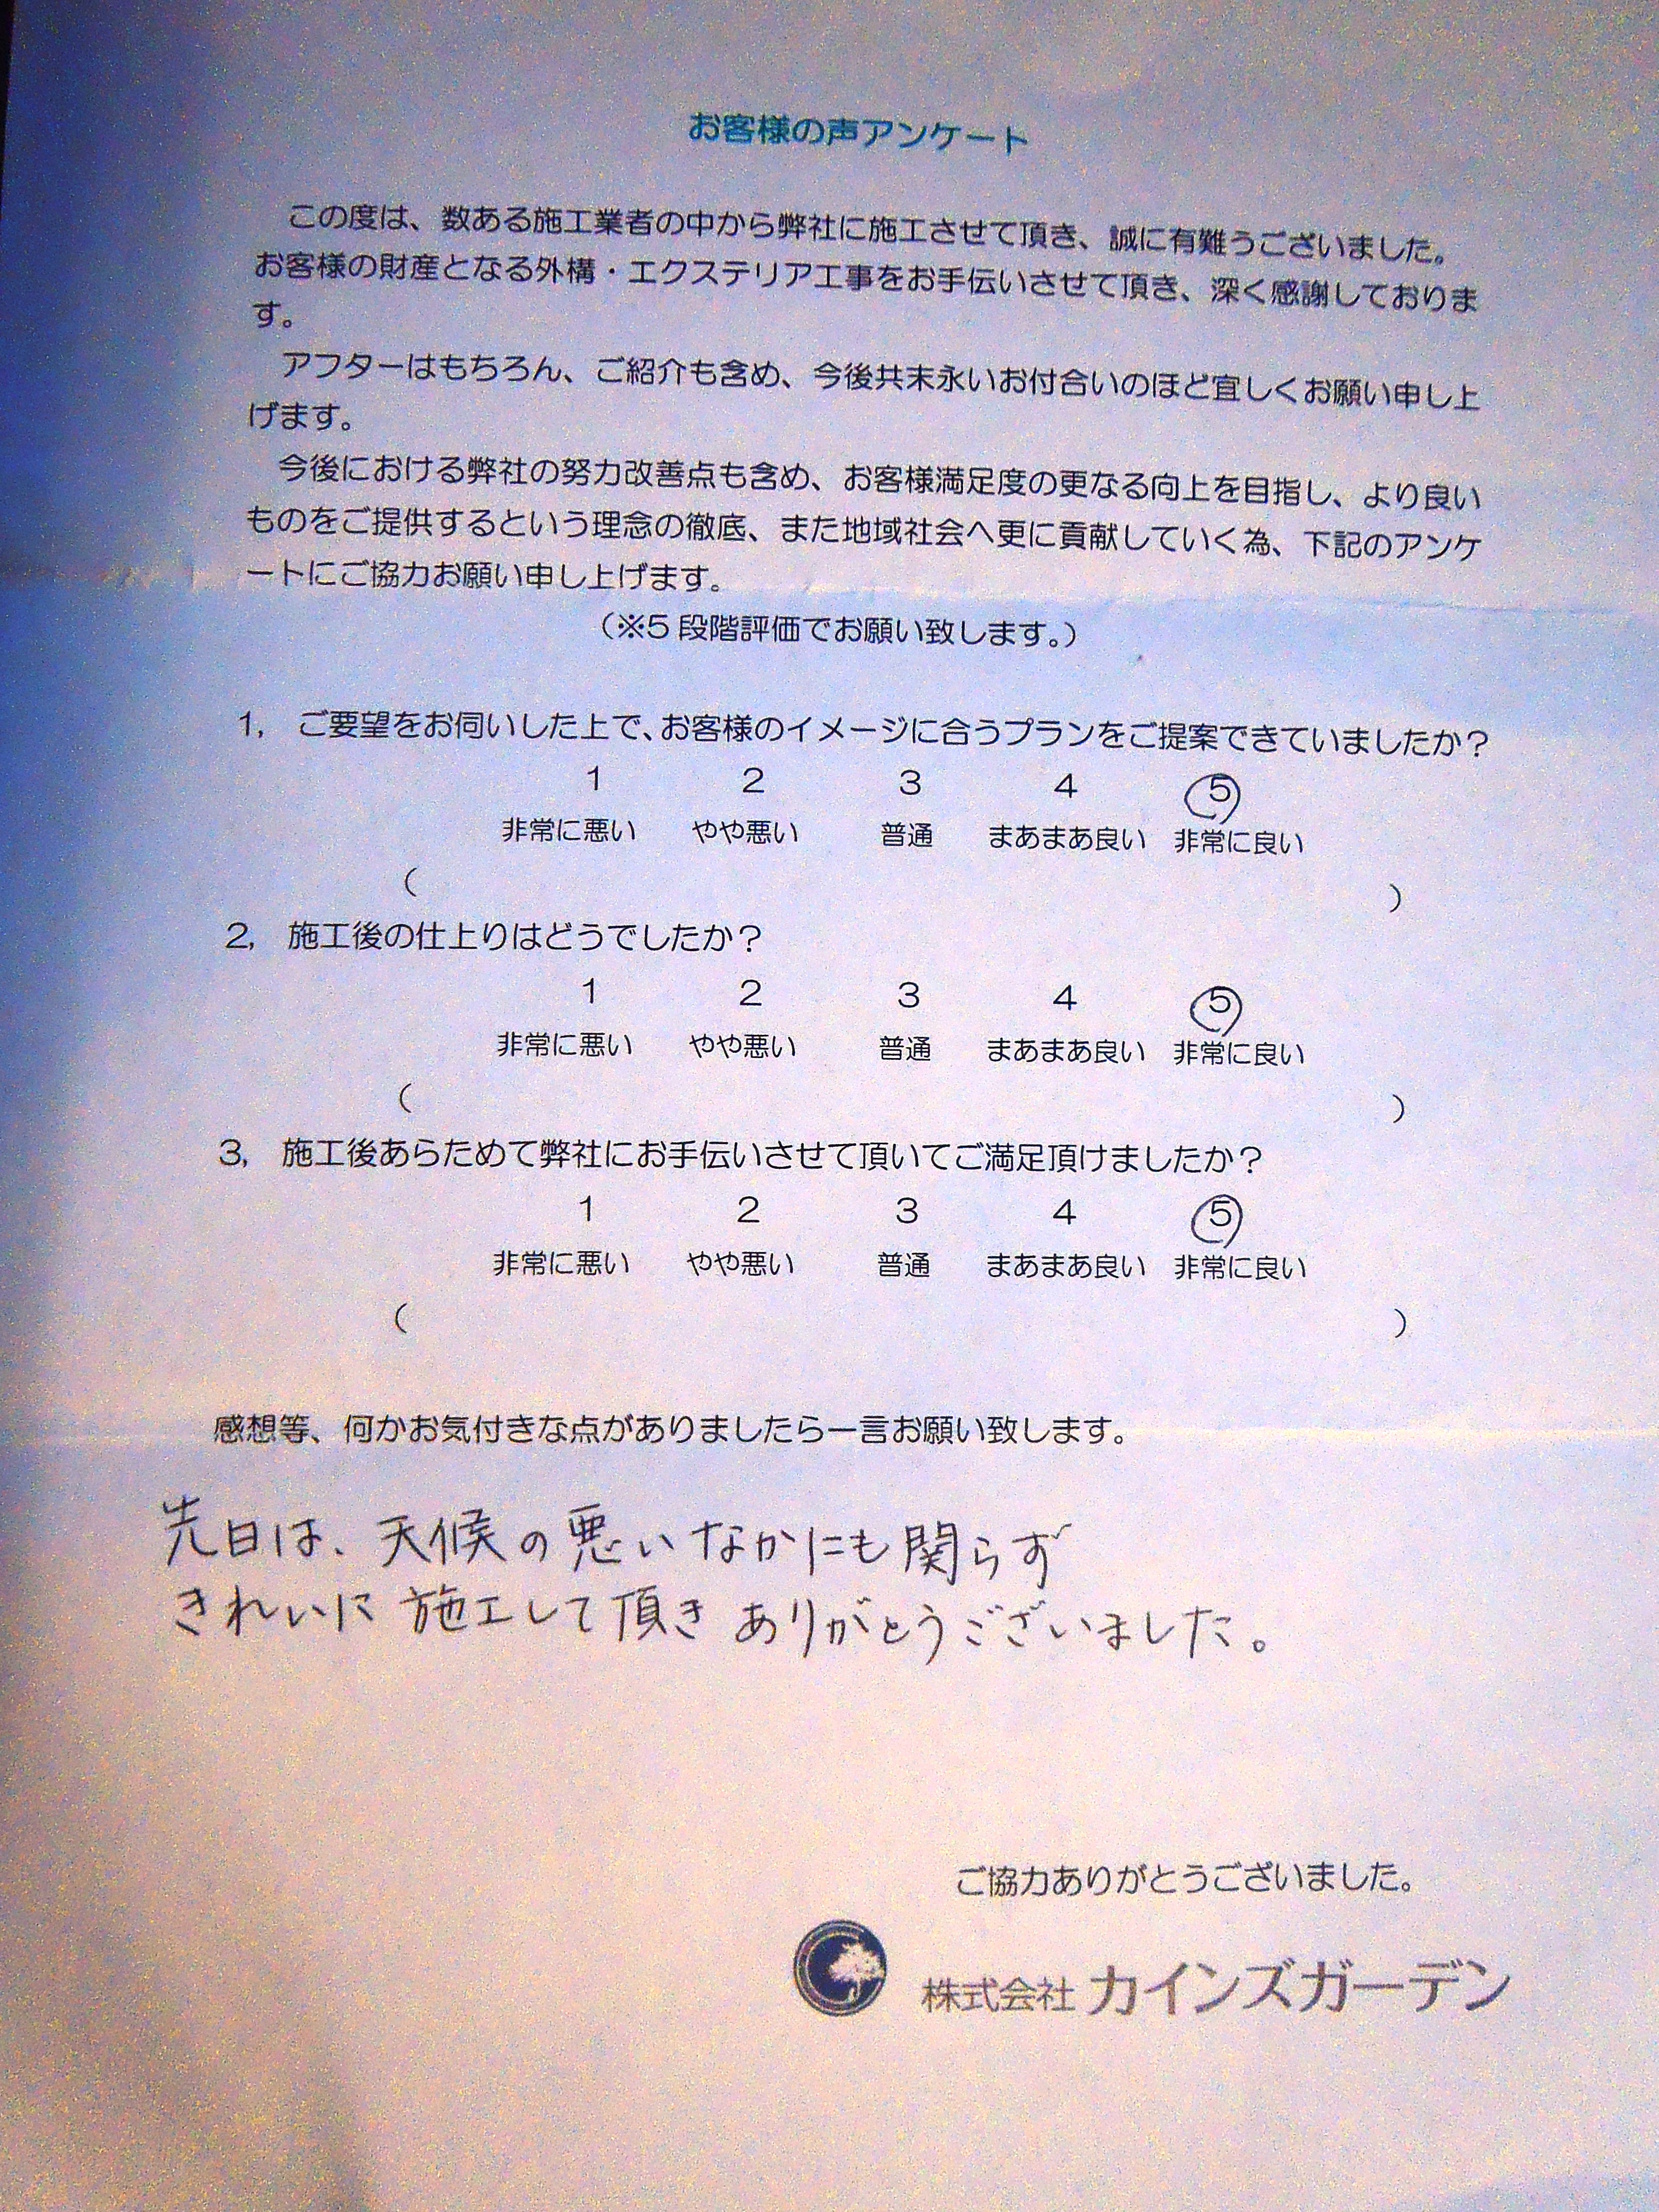 お客様の声アンケート
この度は、数ある施工業者の中から弊社に施工させて頂き、誠に有難うございました。
お客様の財産となる外構・エクステリア工事をお手伝いさせて頂き、深く感謝しておりま
す。
アフターはもちろん、ご紹介も含め、今後共末永いお付合いのほど宜しくお願い申し上
げます。
今後における弊社の努力改善点も含め、お客様満足度の更なる向上を目指し、より良い
ものをご提供するという理念の徹底、また地域社会へ更に貢献していく為、下記のアンケ
ートにご協力お願い申し上げます。
（※5 段階評価でお願い致します。）
1, ご要望をお伺いした上で、お客様のイメージに合うプランをご提案できていましたか？
1 2 3 4 5
非常に悪い やや悪い 普通 まあまあ良い 非常に良い
（ ）
2, 施工後の仕上りはどうでしたか？
1 2 3 4 5
非常に悪い やや悪い 普通 まあまあ良い 非常に良い
（ ）
3, 施工後あらためて弊社にお手伝いさせて頂いてご満足頂けましたか？
1 2 3 4 5
非常に悪い やや悪い 普通 まあまあ良い 非常に良い
（ ）
感想等、何かお気付きな点がありましたら一言お願い致します。
先日は、天候の悪いなかにも関らず
きれいに施工して頂きありがとうございました。
ご協力ありがとうございました。
株式会社 カインズガーデン